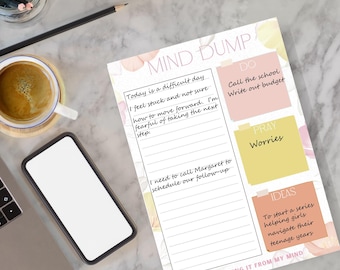 MIND DUMP
Today is a difficult day
I feel stuck and not sure
how to move forward. I'm
fearful of taking the next
step
I need to call Margaret to
schedule our follow-up
DO
Call the school.
Write out budget
PRAY
Worries
IDEAS
To start a series
helping girls
navigate their
teenage years
IT FROM MY MIND